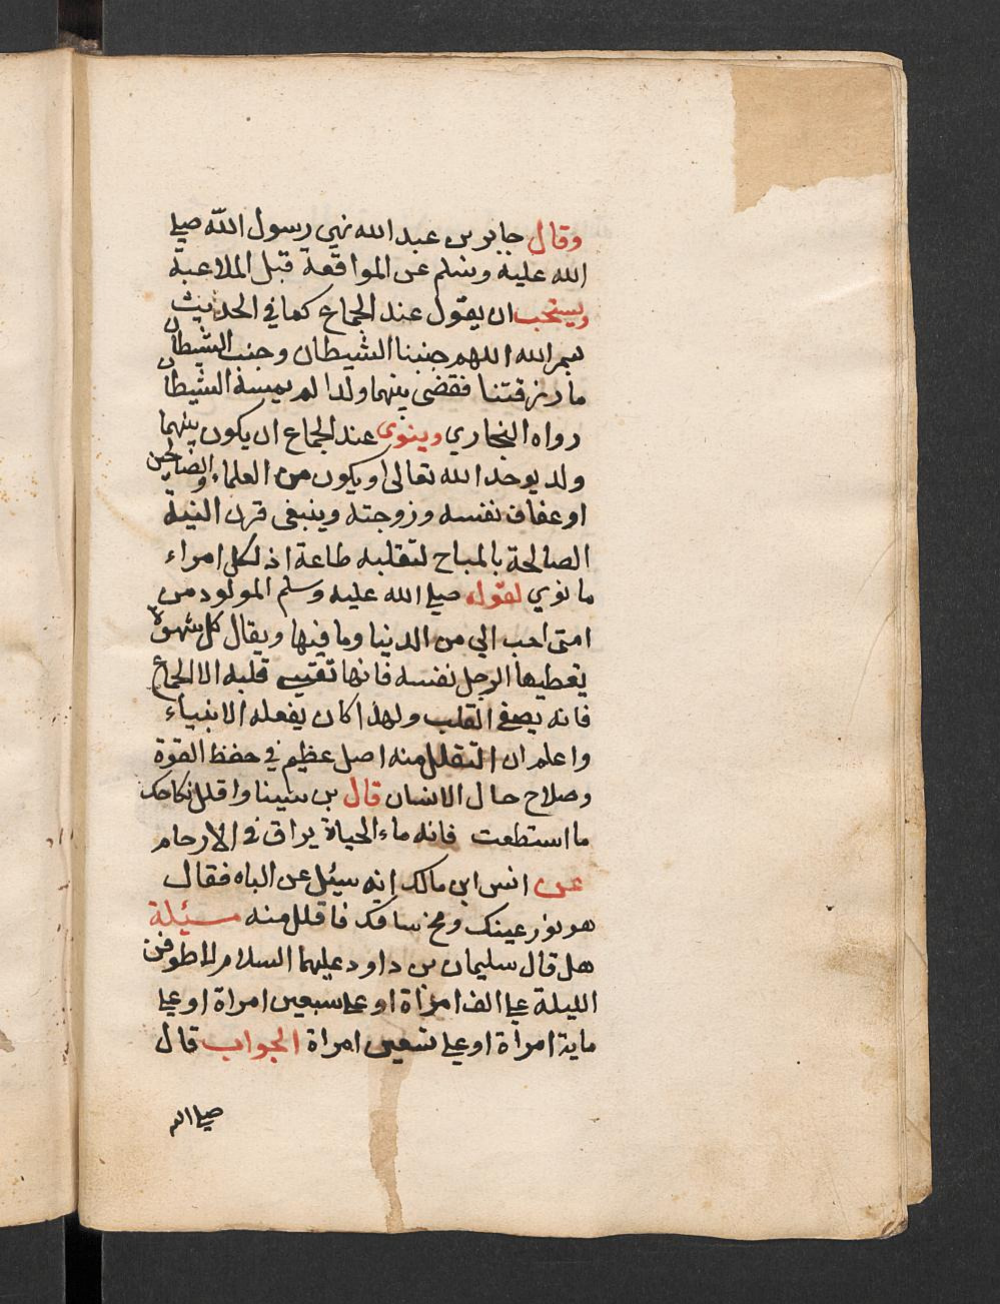 وقال جابر بن عبد الله نهى رسول الله صلى
الله عليه وسلم عن المواقعة قبل الملاعبة
ويستحب ان يقول عند الجماع كما في الحديث
بسم الله اللهم جنبنا الشيطان وجنب الشيطان
ما رزقتنا فقضى بينهما ولدا لم يمسه الشيطان
رواه البخاري وينوى عند الجماع ان يكون بينهما
ولد يوحد الله تعالى او يكون من العلماء والصالحين
او عفاف نفسه وزوجته وينبغى قرن النية
الصالحة بالمباح لتقلبه طاعة اذ لكل امراء
ما نوي لقوله صلى الله عليه وسلم المولود من
امتى احب الي من الدنيا وما فيها ويقال كل شهوة
يعطيها الرجل نفسه فانها تقسي قلبه الا الجماع
فانه يصفي القلب ولهذا كان يفعله الانبياء
واعلم ان التقلل منه اصل عظيم في حفظ القوة
وصلاح حال الانسان قال بن سينا واقلل نكاحك
ما استطعت فانه ماء الحياة يراق في الارحام
عن انس ابن مالك انه سيئل عن الباه فقال
هو نور عينك ومخ ساقك فاقلل منه مسيئلة
هل قال سليمان بن داود عليهما السلام لاطوفن
الليلة على الف امراة او على سبعين امراة او على
ماية امراة او على تسعين امراة الجواب قال
صلى الله